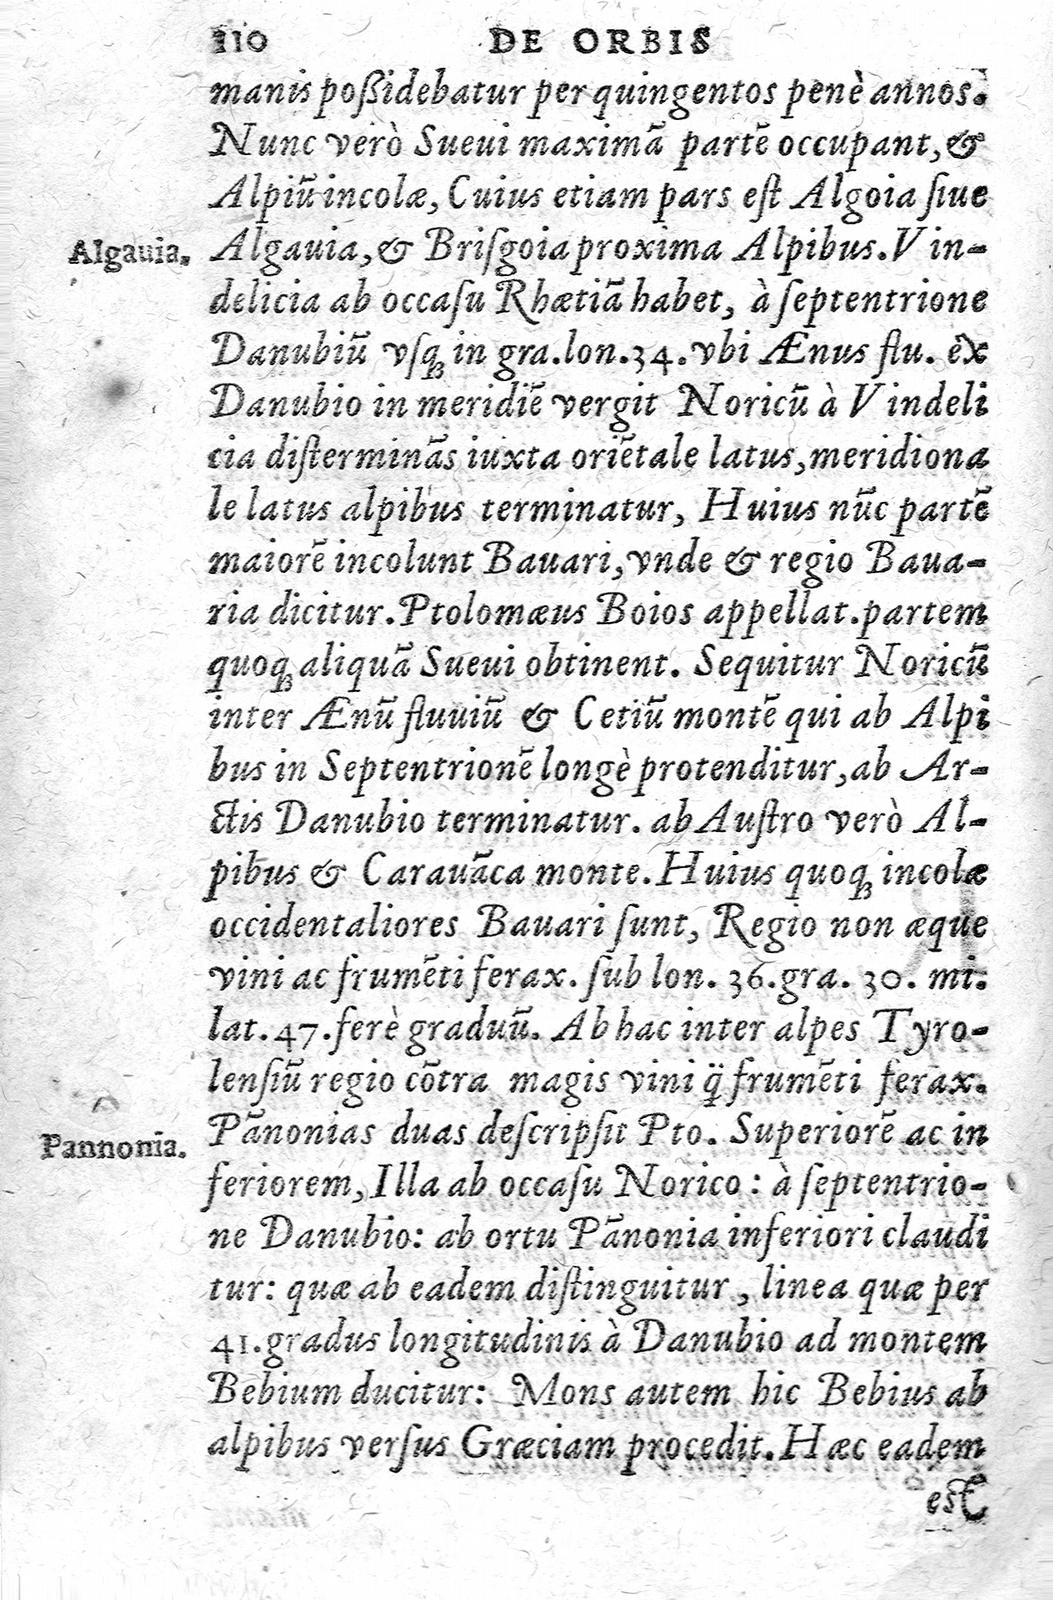 110 DE ORBIS
manis poßidebatur per quingentos penè annos.
Nunc verò Sueui maximā partē occupant, &
Alpiū incolæ, Cuius etiam pars eſt Algoia ſiue
Algauia.
Algauia, & Briſgoia proxima Alpibus. Vin-
delicia ab occaſu Rhætiā habet, à ſeptentrione
Danubiū vſqꝫ in gra. lon. 34. vbi Ænus flu. ex
Danubio in meridiē vergit Noricū à Vindeli
cia diſterminās iuxta oriētale latus, meridiona
le latus alpibus terminatur, Huius nūc partē
maiorē incolunt Bauari, vnde & regio Baua-
ria dicitur. Ptolomæus Boios appellat. partem
quoqꝫ aliquā Sueui obtinent. Sequitur Noricū
inter Ænū fluuiū & Cetiū montē qui ab Alpi
bus in Septentrionē longè protenditur, ab Ar-
ctis Danubio terminatur. ab Auſtro verò Al-
pibus & Carauāca monte. Huius quoqꝫ incolæ
occidentaliores Bauari ſunt, Regio non æque
vini ac frumēti ferax. ſub lon. 36. gra. 30. mi.
lat. 47. ferè graduū. Ab hac inter alpes Tyro-
lenſiū regio cōtra magis vini q̄ frumēti ferax.
Pannonia.
Pānonias duas deſcripſit Pto. Superiorē ac in
feriorem, Illa ab occaſu Norico: à ſeptentrio-
ne Danubio: ab ortu Pānonia inferiori claudi
tur: quæ ab eadem diſtinguitur, linea quæ per
41. gradus longitudinis à Danubio ad montem
Bebium ducitur: Mons autem hic Bebius ab
alpibus verſus Græciam procedit. Hæc eadem
est